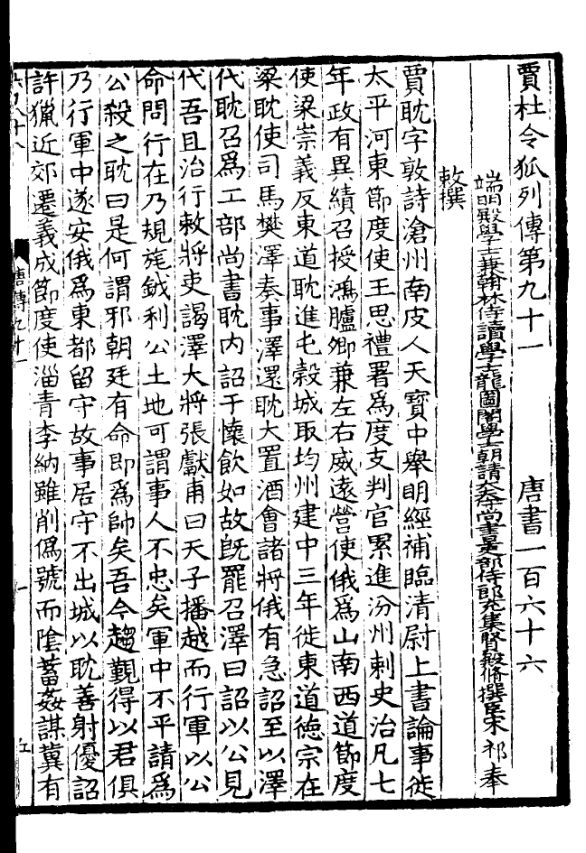 賈杜令狐列傳第九十一　唐書一百六十六
端明殿學士兼翰林侍讀學士龍圖閣學士朝請大夫守尚書吏部侍郎充集賢殿脩撰臣宋祁奉
敕撰
賈耽字敦詩滄州南皮人天寶中舉明經補臨清尉上書論事徙
太平河東節度使王思禮署爲度支判官累進汾州刺史治凡七
年政有異績召授鴻臚卿兼左右威遠營使俄爲山南西道節度
使梁崇義反東道耽進屯穀城取均州建中三年徙東道德宗在
梁耽使司馬樊澤奏事澤還耽大置酒會諸將俄有急詔至以澤
代耽召爲工部尚書耽内詔于懷飲如故旣罷召澤曰詔以公見
代吾且治行敕將吏謁澤大將張獻甫曰天子播越而行軍以公
命問行在乃規旄鉞利公土地可謂事人不忠矣軍中不平請爲
公殺之耽曰是何謂邪朝廷有命即爲帥矣吾今趨覲得以君俱
乃行軍中遂安俄爲東都留守故事居守不出城以耽善射優詔
許獵近郊遷義成節度使淄青李納雖削僞號而陰蓄姦謀冀有
唐傳九十一